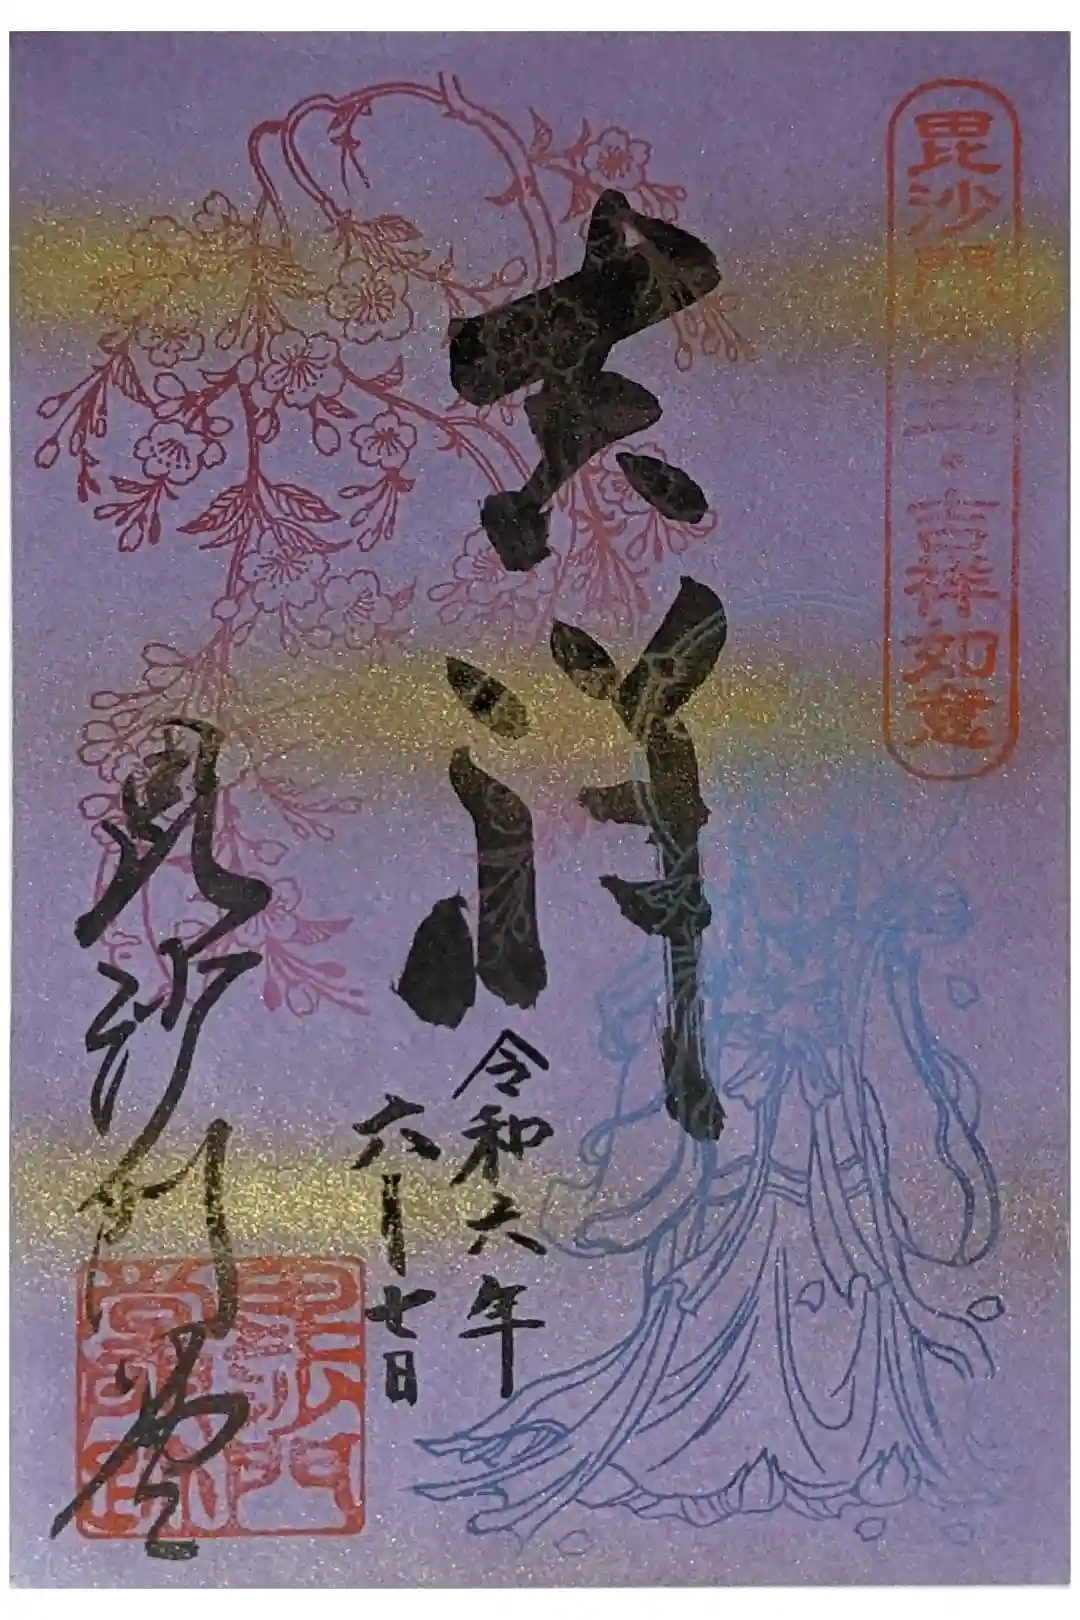 毘沙門天王・吉祥如意
吉祥
令和六年
六十七日
毘沙門堂
毘沙門堂跡